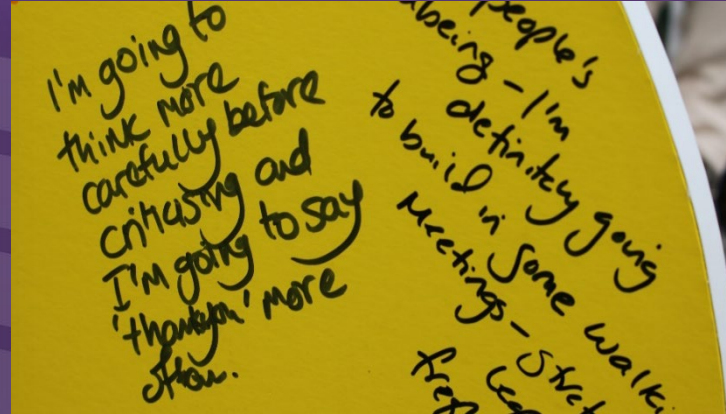 I'm going to
think more
carefully before
criticising and
I'm going to say
'thankyou' more
often.
people's
being - I'm
definitely going
to build in some
Meetings -